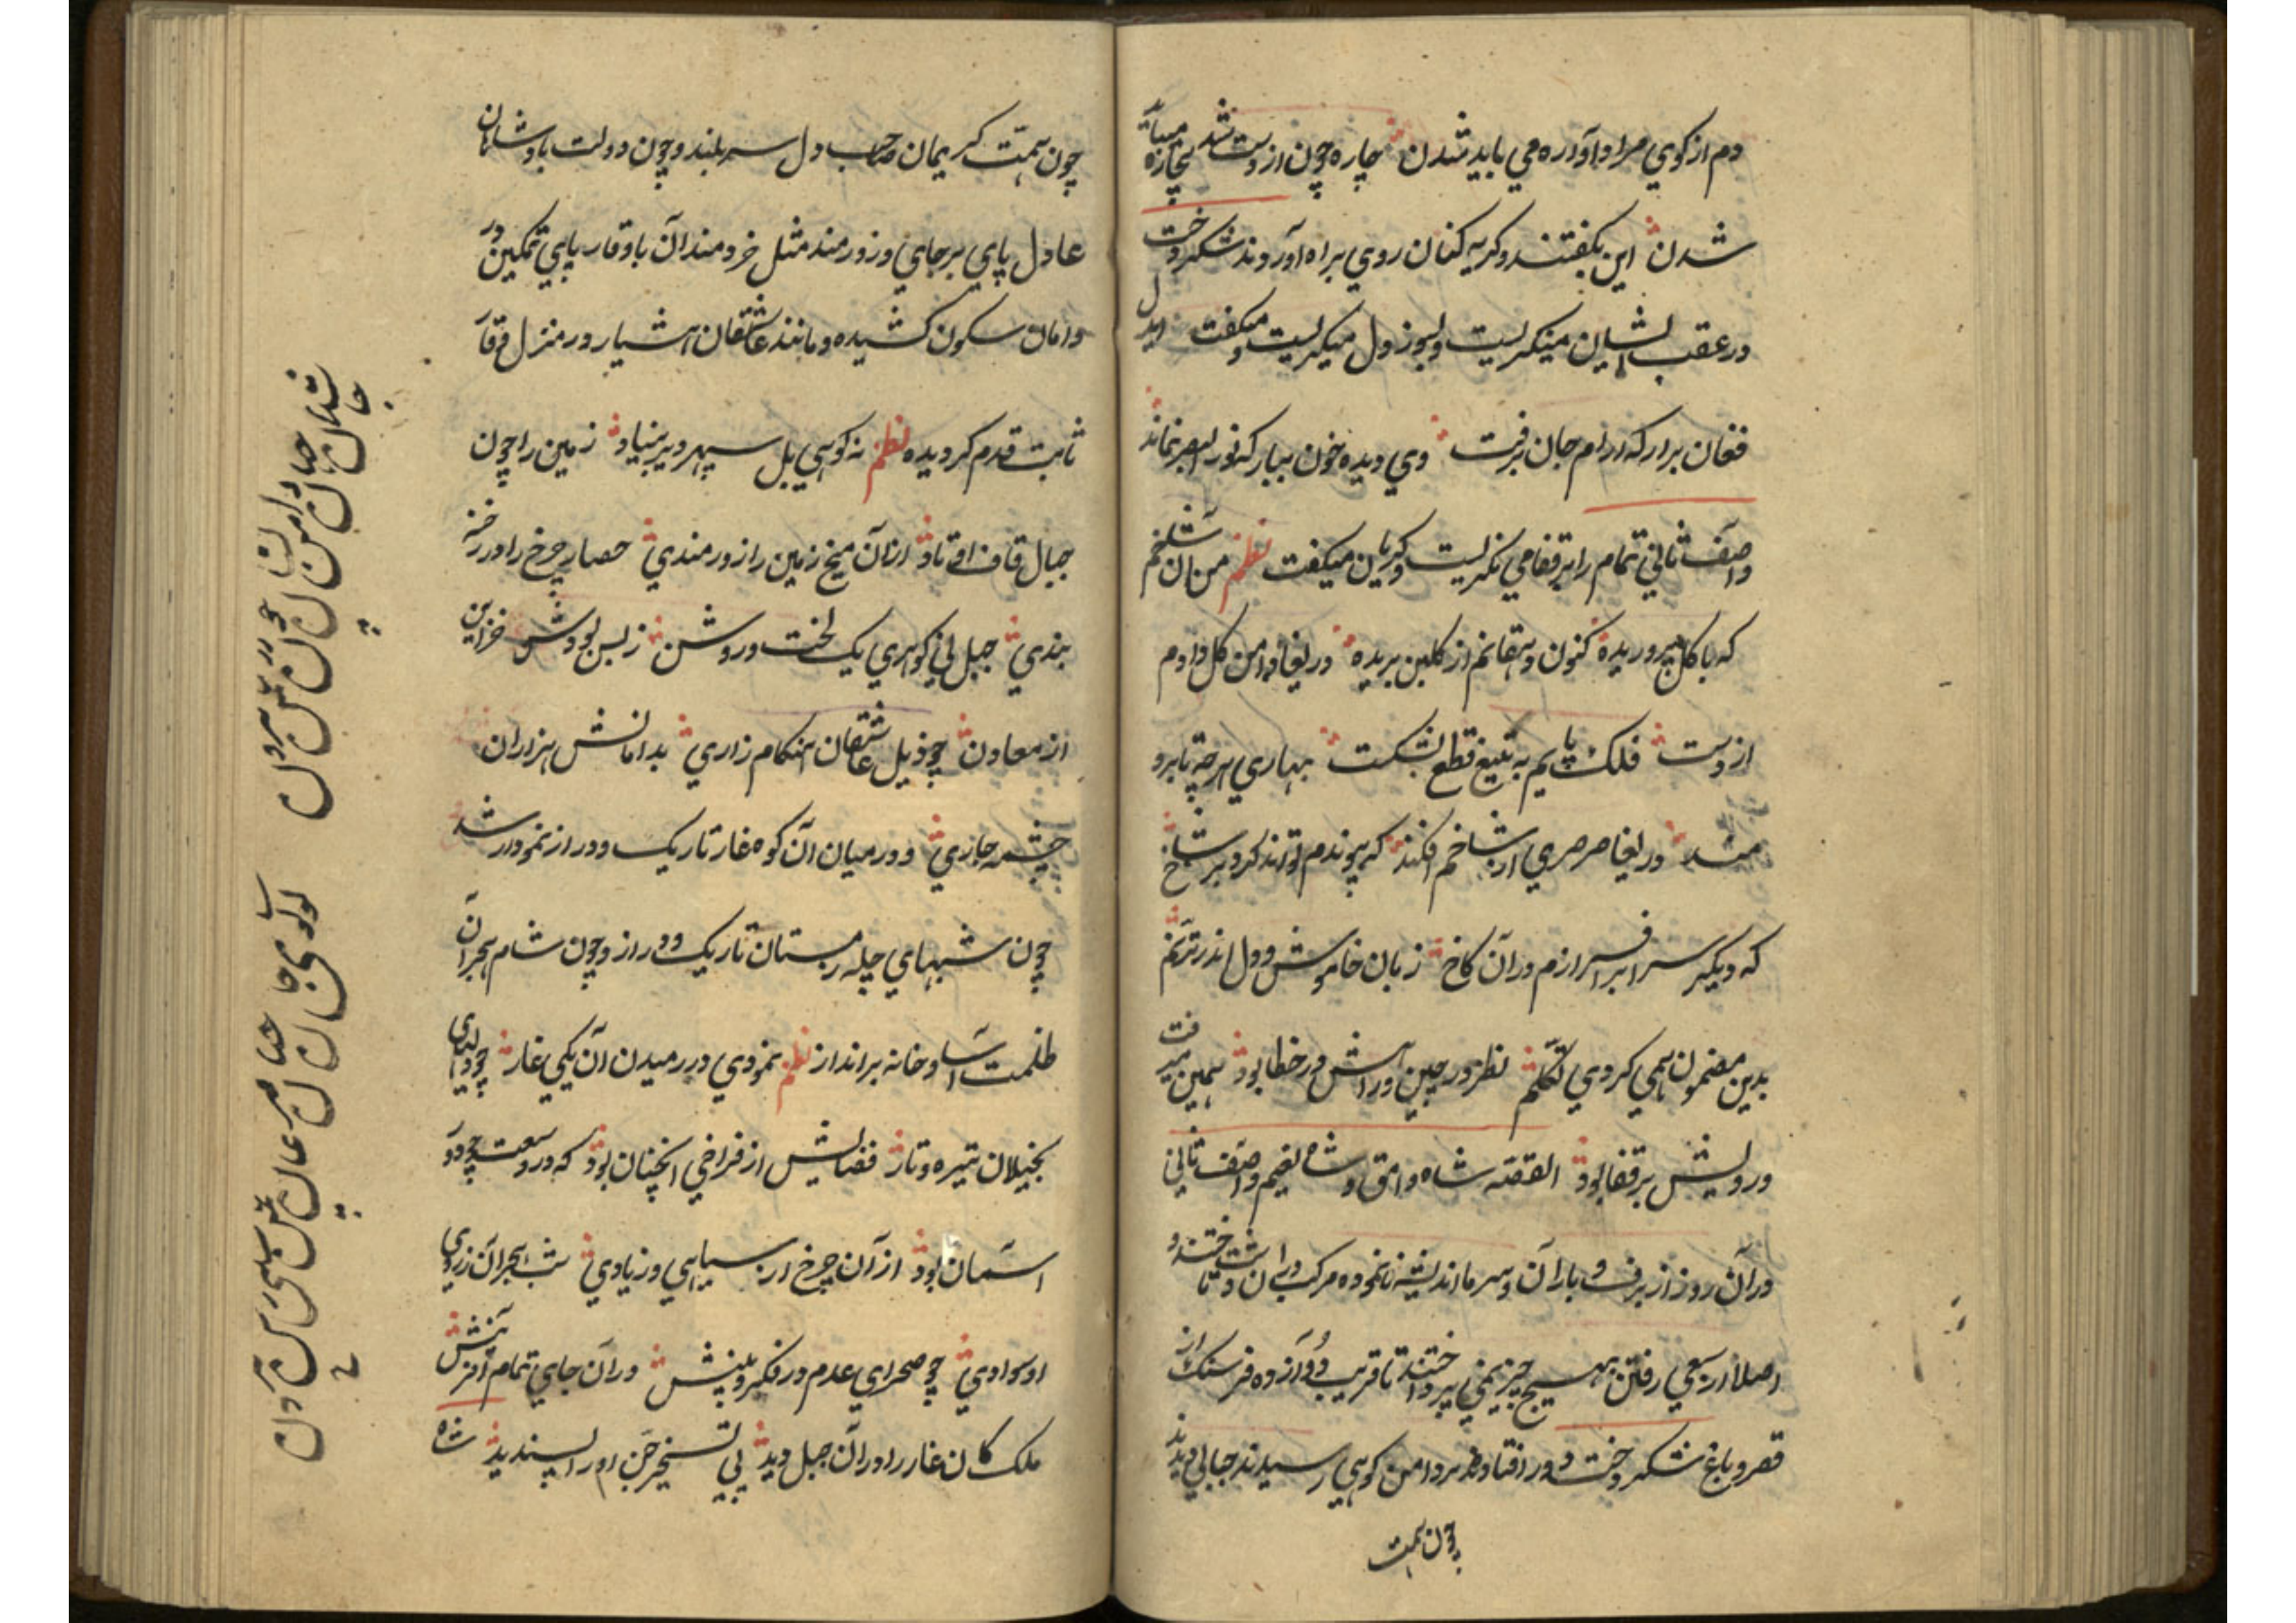 دم از کوي مراد آواره مي بايد شدن چاره چون از دست شد بيچاره ميبايد
شدن اين بگفتند و گريه کنان روي براه آوردند شکردخت
در عقب ايشان مينگريست و بسوز دل ميگريست و ميگفت ايدل
فغان برار که ارام جان برفت وي ديده خون ببار که نور بصر نماند
واصف ثاني تمام راه بر قفا مي نگريست و گريان ميگفت نظم من آن شاخم
که با گل پروريده کنون دهقانم از گلبن بريده دريغا دامن گل دادم
از دست فلک پايم به تيغ قطع بشکست بهاري هرچه تا برو
دريغا صرصري از شاخم افکند که پيوندم تواند کرد بر شاخ
که ديگر سر برافرازم در آن کاخ زبان خاموش و دل اندر ترنم
بدين مضمون همي کردي تکلم نظر در چين و راهش در خطا بود همين ميرفت
و رويش بر قفا بود القصه شاه وامق و شاه نعيم و واصف ثاني
در آن روز از برف و باران و سرما انديشه نانموده مرکب دران دشت تاختند و
اصلا از سعي رفتن بهيچ چيز نمي پرداختند تا قريب دوازده فرسنک از
قصر و باغ شکردخت دور افتادند بر دامن کوهي رسيدند جبالي ديدند
چون همت
چون همت کريمان صاحب دل سر بلند و چون دولت پادشاهان
عادل پاي برجاي و زورمند مثل خردمندان با وقار پاي تمکين در
دامان سکون کشيده و مانند عاشقان هشيار در منزل وقار
ثابت قدم گرديده نظم نه کوهي بل سپهر دير بنياد زمين را چون
جبال قاف اوتاد ازان ميخ زمين را زورمندي حصار چرخ را در رخنه
بندي جبل ني گوهري يک لخت و روشن ز بس بودش خزاين
از معادن چو ذيل عاشقان هنگام زاري بدامانش هزاران
چشمه جاري و در ميان آن کوه غار تاريک و دراز نمودار شد
چون شبهاي چله زمستان تاريک و دراز و چون شام هجران
ظلمت آسا و خانه برانداز نظم نمودي در رميدن آن يکي غار چو دلهاي
بخيلان تيره و تار فضايش از فراخي آنچنان بود که در وسعت چو دور
آسمان بود از آن چرخ از سياهي و زيادي شب هجران ز روي
او سوادي چو صحراي عدم در فکر و بينش در آن جاي تمام آفرينش
ملک کان غار را در آن جبل ديد پي تسخير جن او را پسنديد شاه